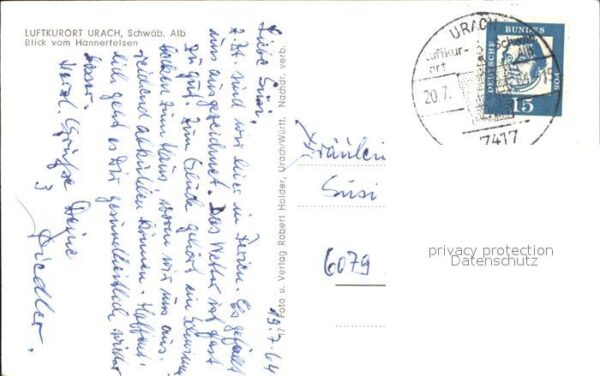 LUFTKURORT URACH, Schwäb. Alb
Blick vom Hannerfelsen
19.7.64
Liebe Susi,
z. Zt. sind wir hier in Ferien. Es gefällt
uns ausgezeichnet. Das Wetter ist fast
zu gut. Zum Glück gehört ein
zum Haus, worin wir uns
abkühlen können. Hoffentl.
geht es Dir gesundheitlich wieder
besser.
Herzl. Grüße Deine
Foto u. Verlag Robert Holder, Urach/Württ. Nachdr. verb.
URACH
Luftkur-
ort
Schwäb.
Alb
20.7.
7417
DEUTSCHE BUNDESPOST
15
Fräulein
Susi
6079
privacy protection
Datenschutz